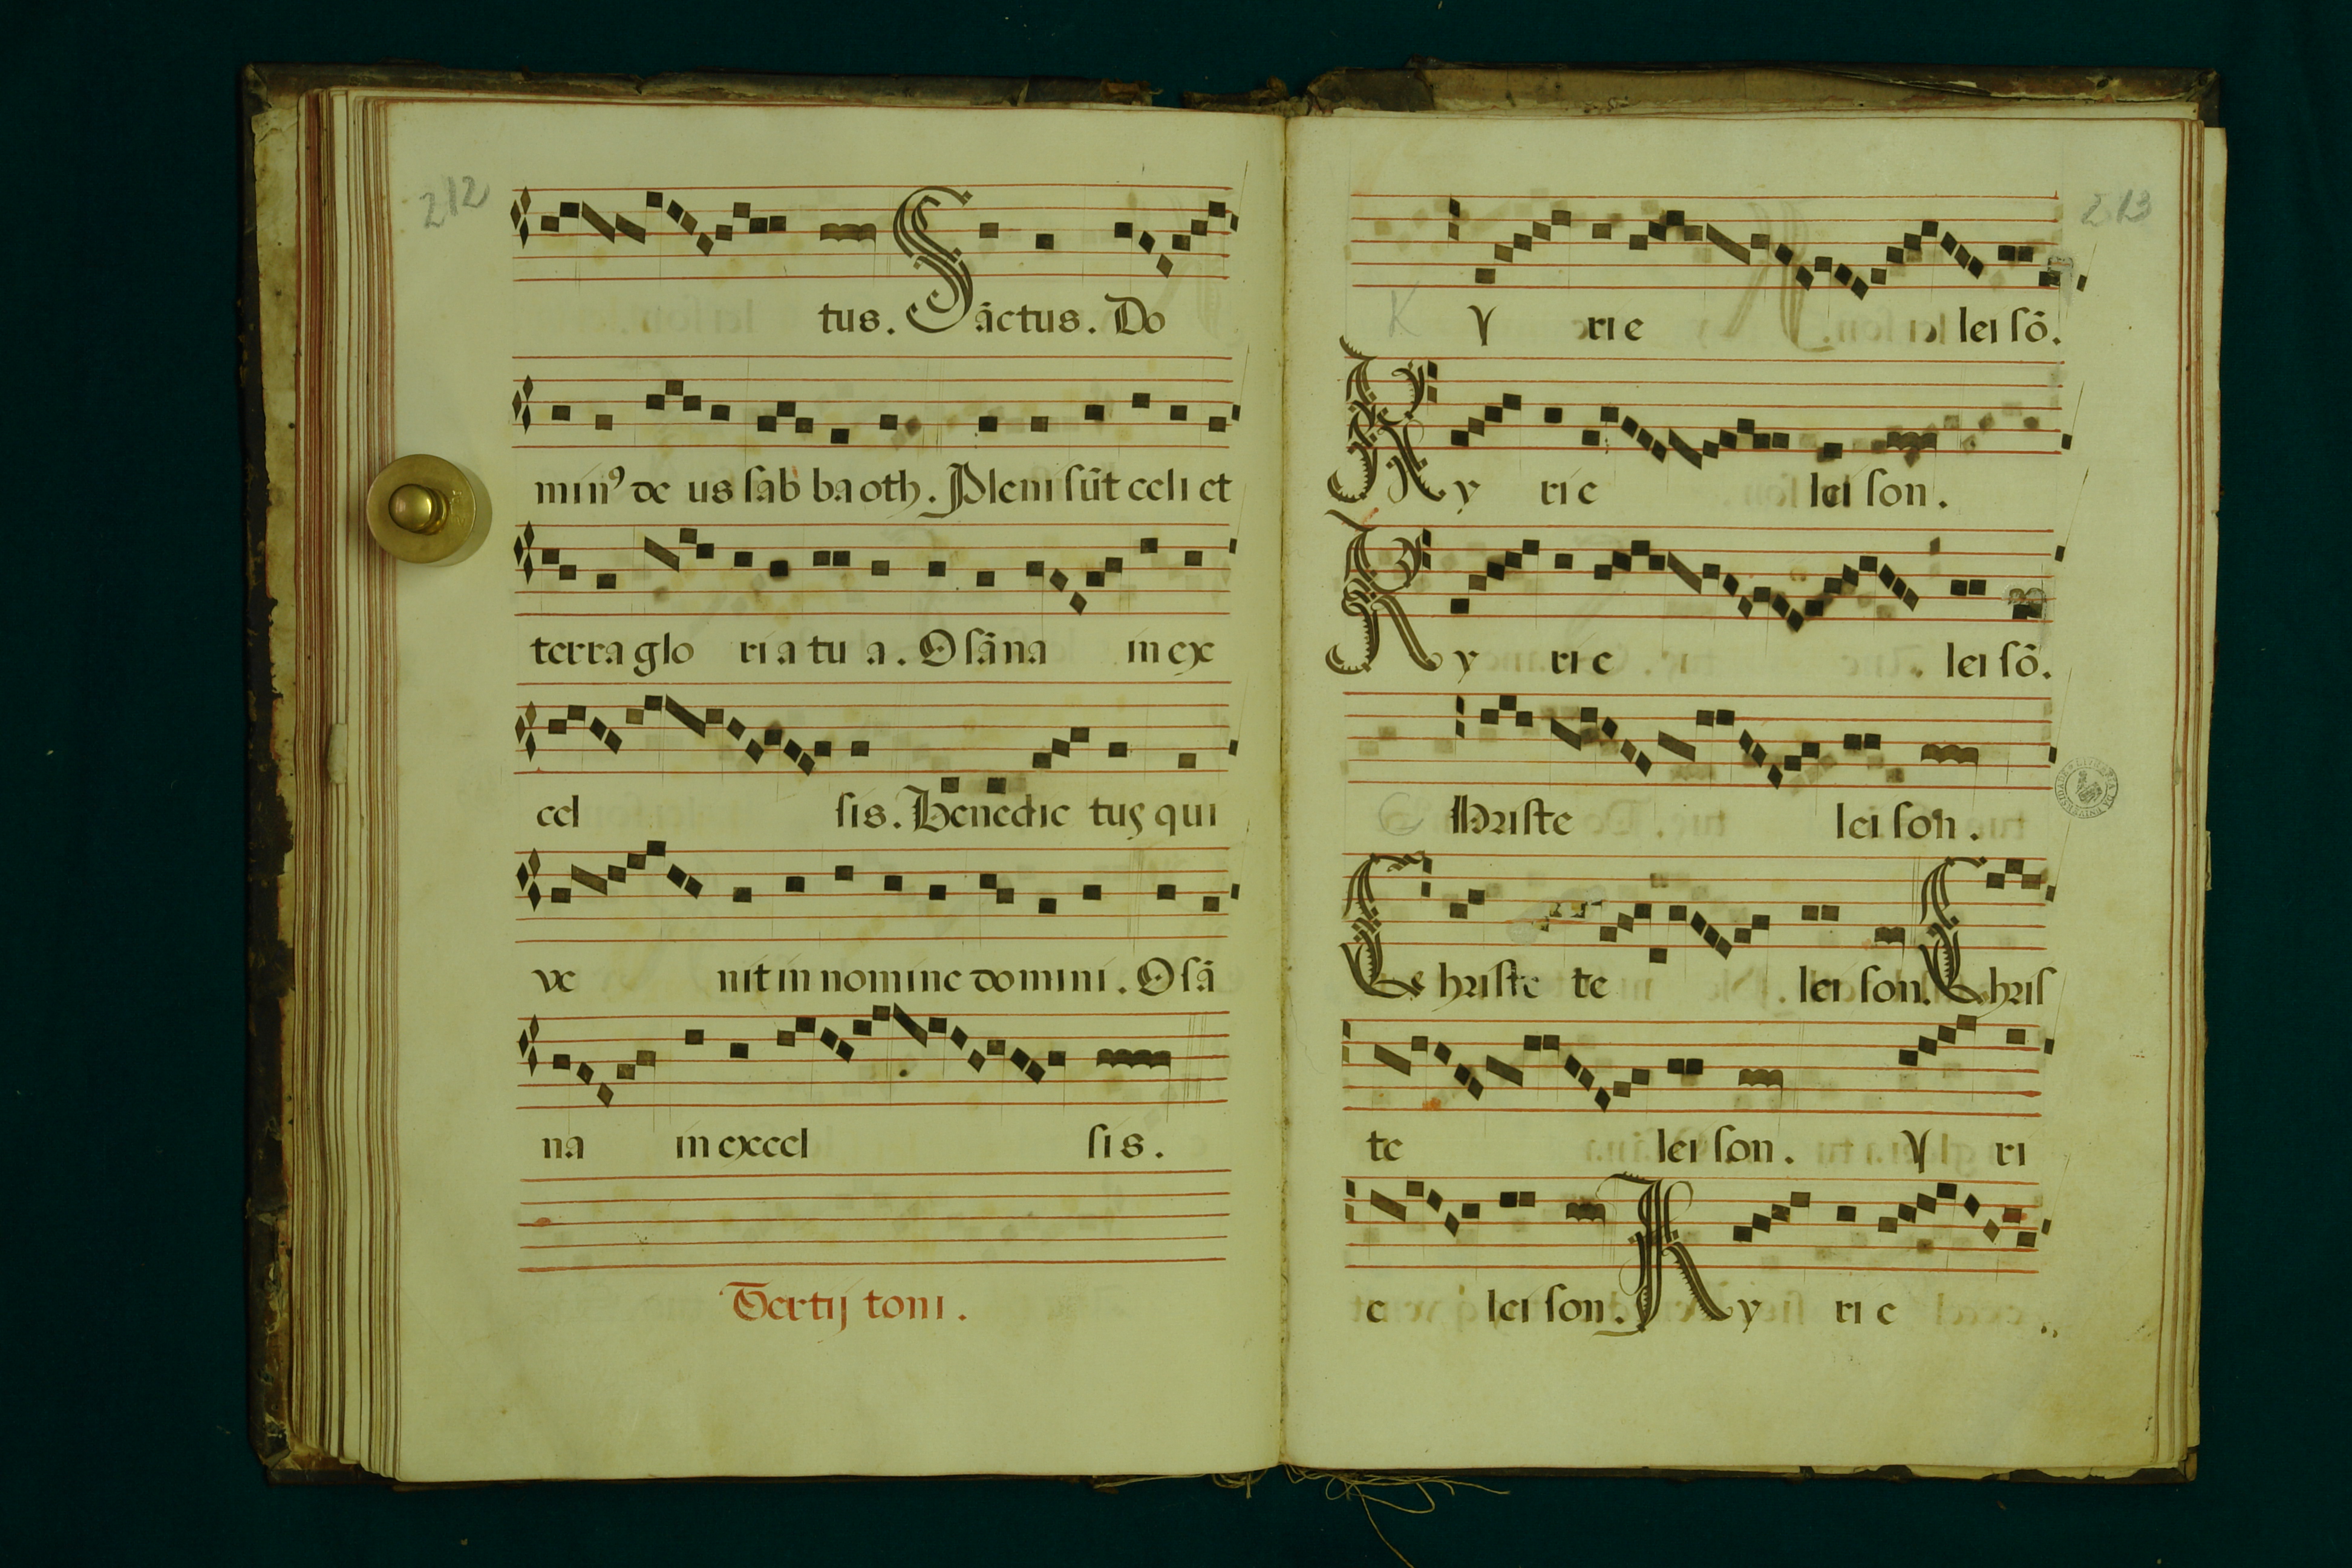 212
tus. Sãctus. Do
minꝰ de us ſab baoth. Pleni ſũt celi et
terra glo ri a tu a. Oſãna in ex
cel ſis. Benedic tus qui
ve nit in nomine domini. Oſã
na in excel ſis.
Tertij toni.
213
K y rie lei ſõ.
Ky rie lei ſon.
Ky rie lei ſõ.
C hriſte lei ſon.
Chriſte te lei ſon. Chriſ
te lei ſon. y ri
e lei ſon. Ky rie